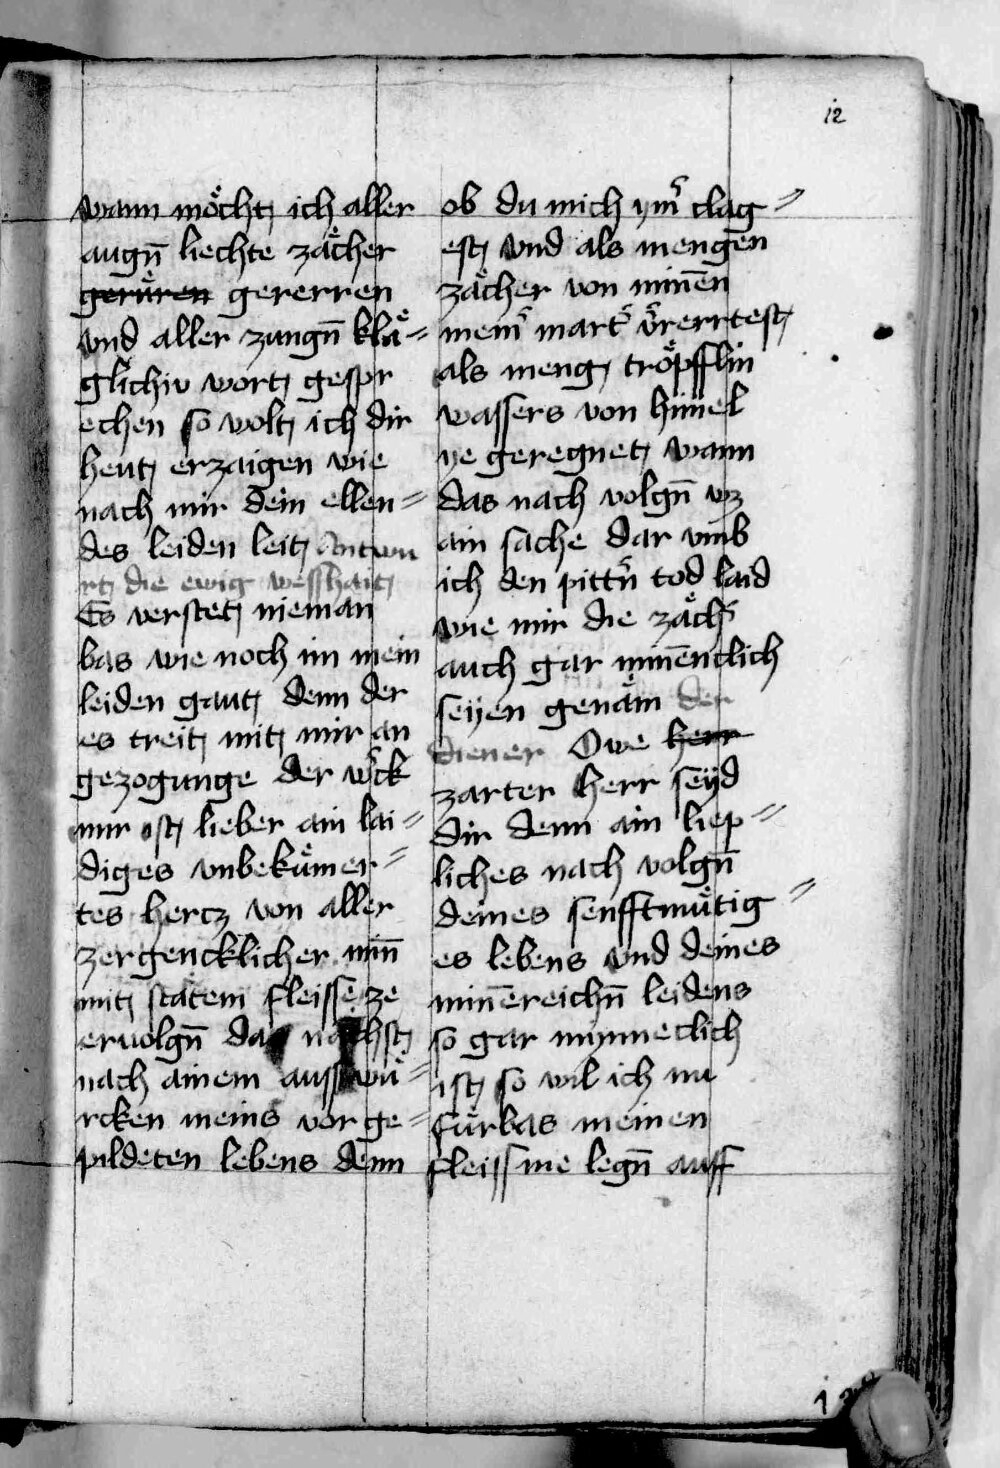 12
wann möcht ich aller
augn̄ liechte zächer
gerüren gererren
vnd aller zungn̄ klä=
glichiv wort gespr
echen so wolt ich dir
heut erzaigen wie
nach mir dein ellen=
des leiden leit Antwu
rt die ewig wesshait
Es verstet nieman
bas wie noch im mein
leiden gaut denn der
es treit mit mir an
gezogunge der w̉ck
mir ist lieber ain lai=
diges vnbekümer=
tes hercz von aller
zergencklicher min̄
mit stätem fleisse ze
eruolgn̄ das nächst
nach ainem ausswü=
rcken meins vor ge=
pildeten lebens denn
ob du mich ym̉ clag=
est vnd als mengen
zächer von min̄en
mein̉ mart̉ v̉rerrtest
als meng tröpfflin
wassers von himel
ye geregnet wann
das nach volgn̄ wz
ain sache dar vmb
ich den pittn̉ tod laid
wie mir die zäch̉
auch gar min̄enclich
seyen genäm der
diener Owe herr
zarter herr seyd
dir denn ain liep=
liches nach volgn̄
deines senfftmütig=
es lebens vnd deines
min̄ereichn̄ leidens
so gar mynneclich
ist so wil ich nu
fürbas meinen
fleiss me legn̄ auff